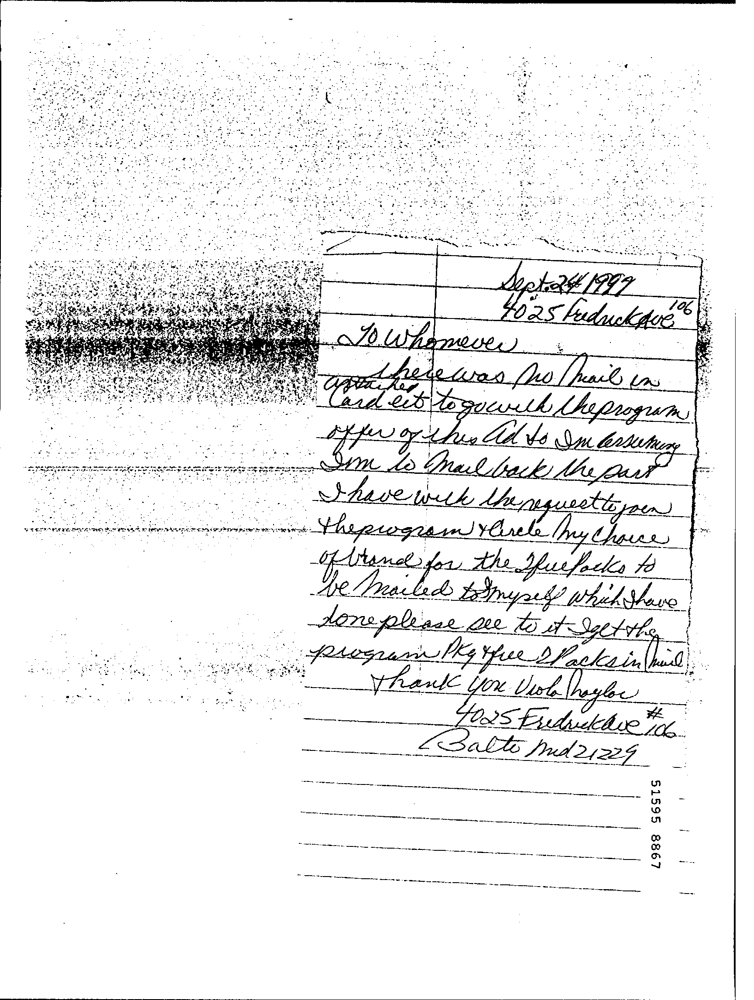 Sept. 24 1999
4025 Fredrick Ave 106
To Whomever
there was no Mail in
attached
Card eit to go with the program
offer of this Ad so Im assuming
Im to Mail back the part
I have with the request to join
the program & Circle My Choice
of brand for the 2 free Packs to
be Mailed to Myself which I have
done please see to it I get the
program Pkg & free 2 Packs in Mail
Thank you Viola Naylor
4025 Fredrick Ave #106
Balto Md 21229
51595 8867